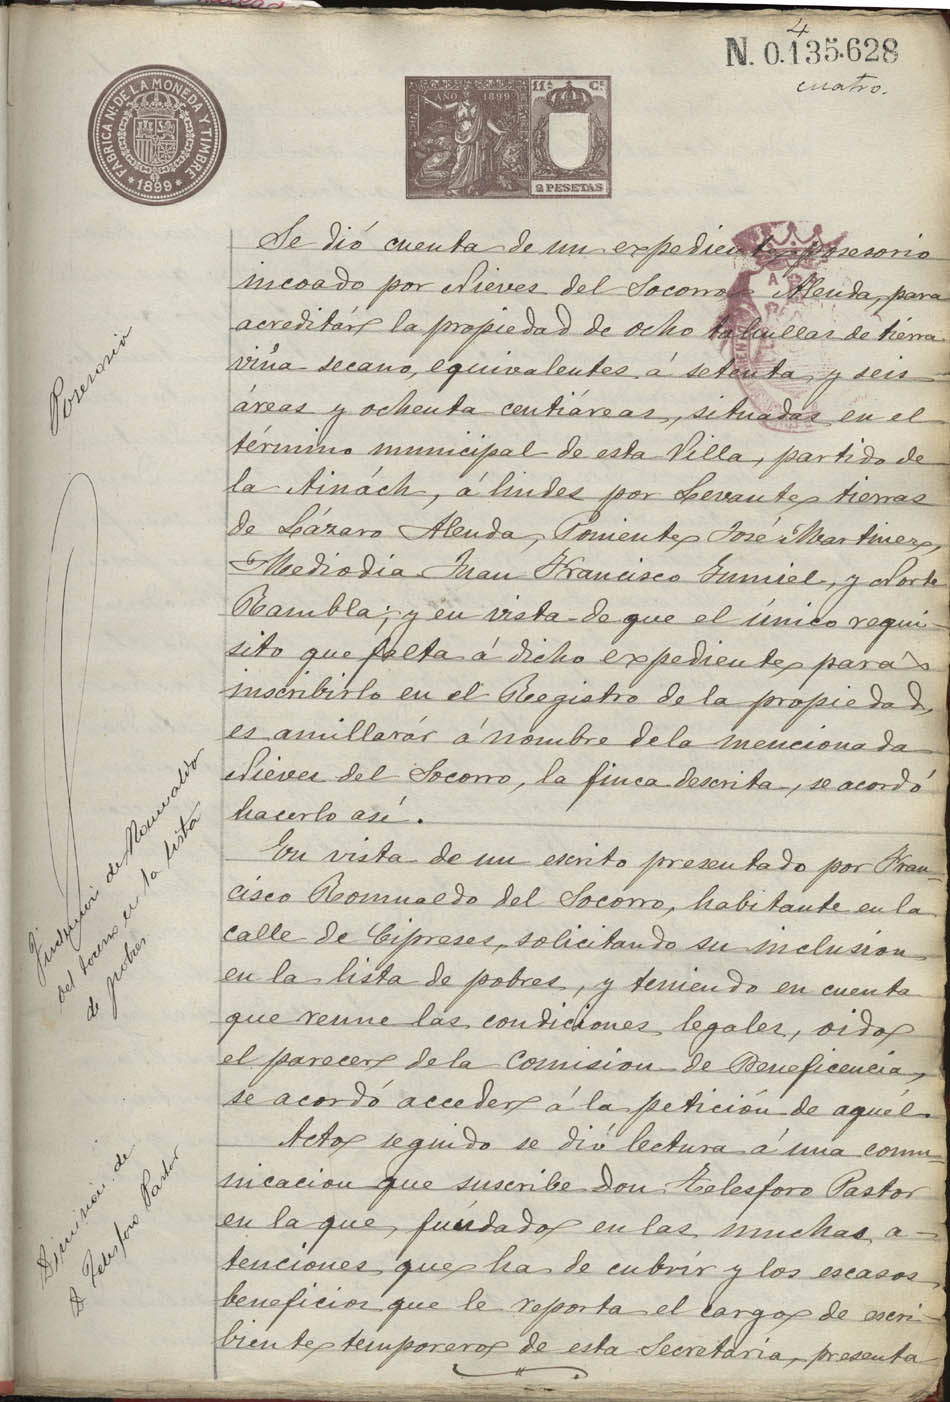 4
N. 0.135.628
cuatro.
FÁBRICA Nᴸ DE LA MONEDA Y TIMBRE
* 1899 *
AÑO 1899
11ª Cᵉ
2 PESETAS
Se dió cuenta de un expediente posesorio
incoado por Nieves del Socorro Alenda, para
acreditár la propiedad de ocho tahullas de tierra
viña secano, equivalentes á setenta y seis
áreas y ochenta centiáreas, situadas en el
término municipal de esta Villa, partido de
la Ainách, á lindes por Levante tierras
de Lázaro Alenda, Poniente José Martinez,
Mediodia Juan Francisco Gumiel, y Norte
Rambla; y en vista de que el único requi-
sito que falta á dicho expediente para
inscribirlo en el Reegistro de la propiedad,
es amillarár á nombre dela mencionada
Nieves del Socorro, la finca descrita, se acordó
hacerlo así.
En vista de un escrito presentado por Fran-
cisco Romualdo del Socorro, habitante en la
calle de Cipreses, solicitando su inclusion
en la lista de pobres, y teniendo en cuenta
que reune las condiciones legales, oido
el parecer dela Comision de Beneficencia,
se acordó acceder á la petición de aquél.
Acto seguido se dió lectura á una comu-
nicacion que suscribe Don Telesforo Pastor
en la que, fundado en las muchas a-
tenciones que ha de cubrir y los escasos
beneficios que le reporta el cargo de escri-
biente temporero de esta Secretaria, presenta
Posesoria
de Romualdo
del Socorro en la lista
de pobres
Dimision de
D Telesforo Pastor